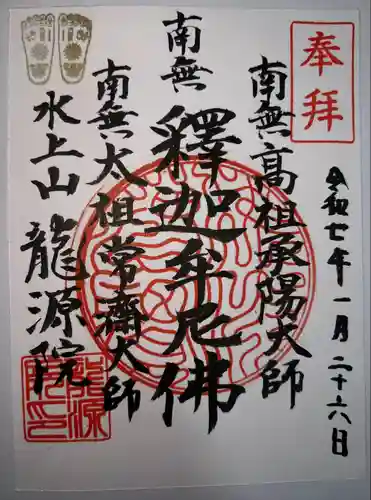 奉拝
令和七年一月二十六日
南無高祖承陽大師
南無
釋迦牟尼佛
南無太祖常齋大師
水上山 龍源院
龍源
院印